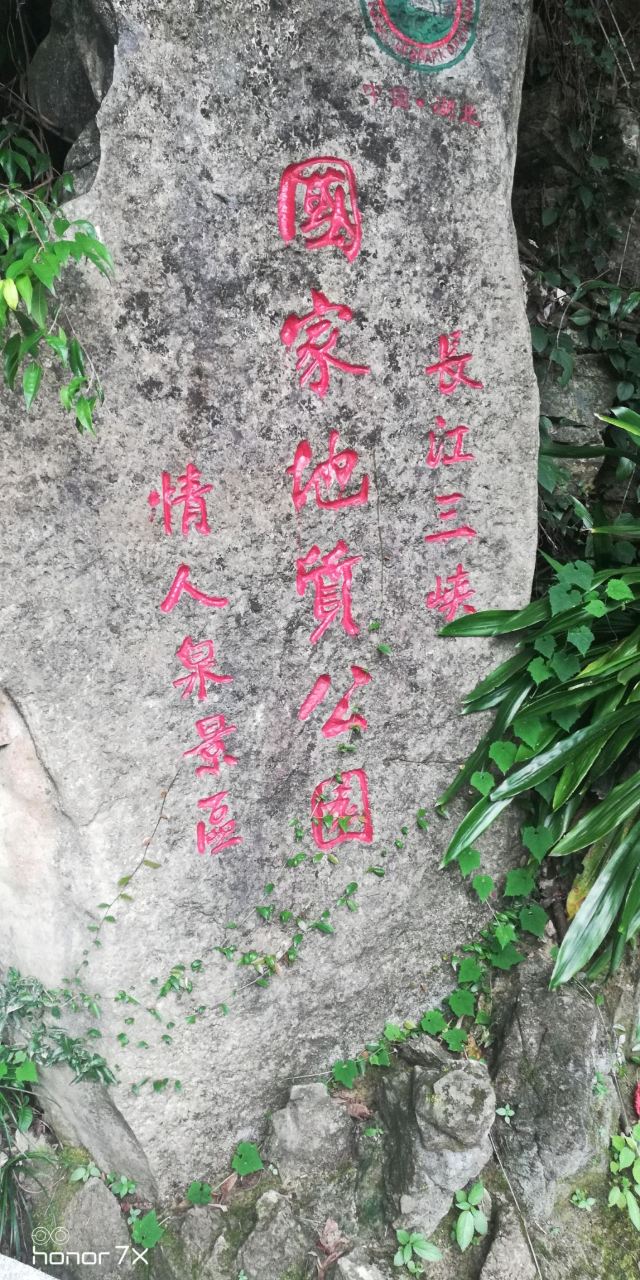 中国·湖北
長江三峡
國家地質公园
情人泉景區
honor 7X